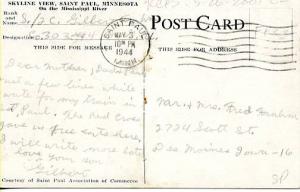 SKYLINE VIEW, SAINT PAUL, MINNESOTA
On the Mississippi River
Rank and Name
Designation
THIS SIDE FOR MESSAGE
POST CARD
THIS SIDE FOR ADDRESS
SAINT PAUL
MAY 3
10 PM
1944
MINN.
Free
Dear Mother, Dad &
a few lines while
wait for my train in
St. Paul. The Red Cross
gave us free cards here,
I will write more later
love your son
Gilbert
Mr. & Mrs. Fred
2734 Scott St
Des Moines Iowa - 16
Courtesy of Saint Paul Association of Commerce